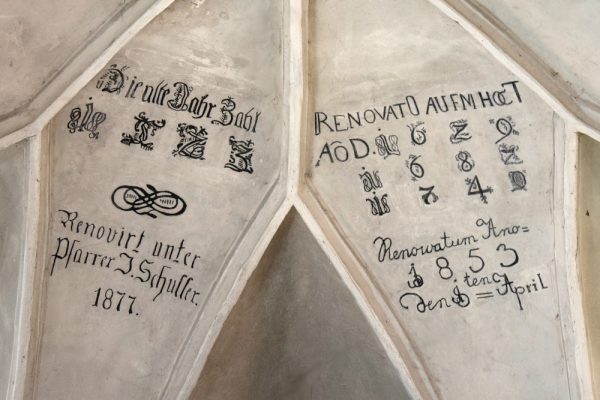 Die alte Jahr Zahl
Renovirt unter
Pfarrer J. Schuller.
1877.
RENOVATO
AÖD. 1 6 2 9.
1 6 8 2
1 7 4 9
Renowatum Ano=
1853
ten
den 8 = April